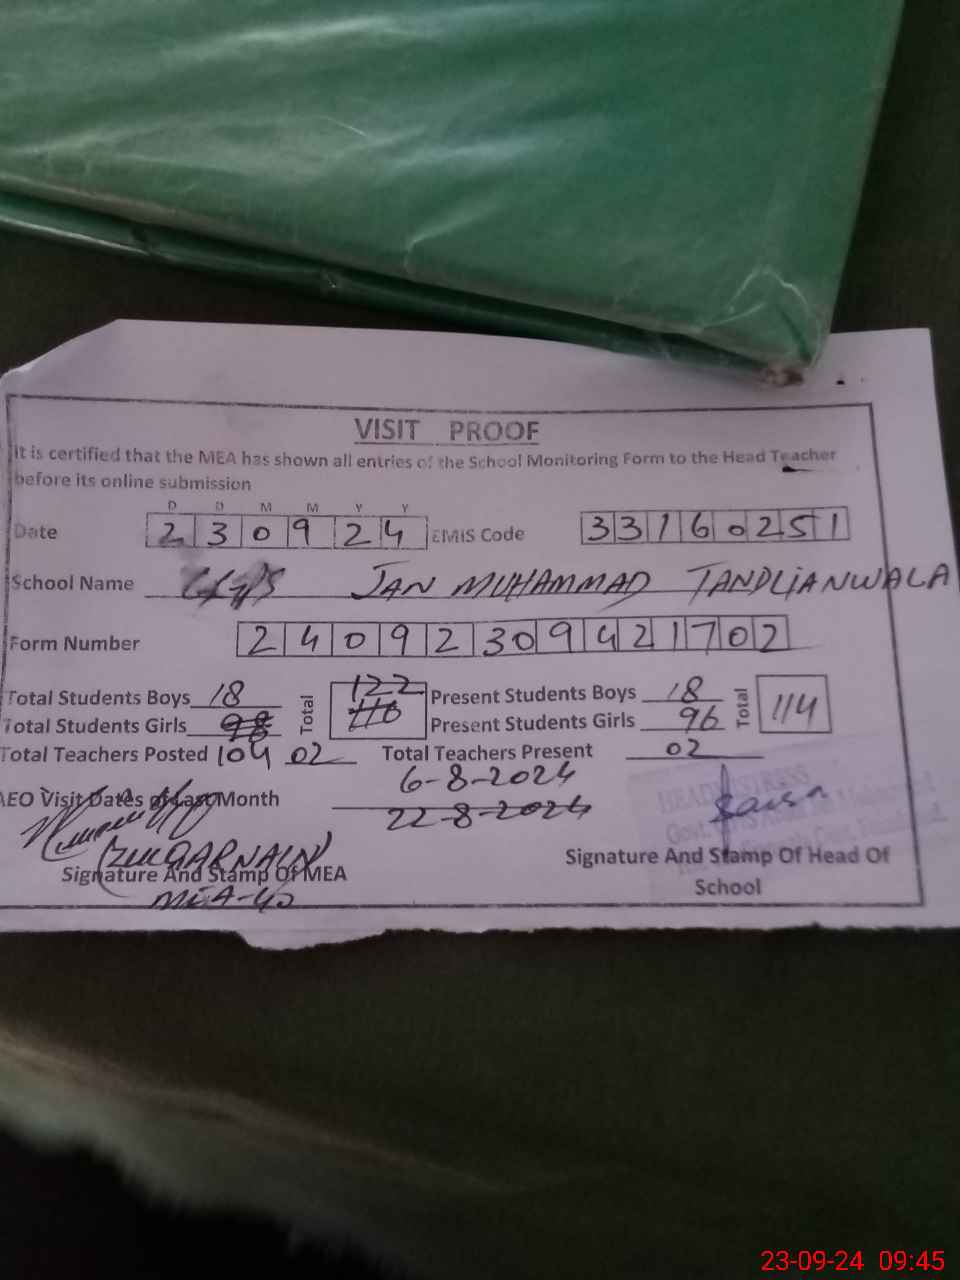 VISIT PROOF
It is certified that the MEA has shown all entries of the School Monitoring Form to the Head Teacher
before its online submission
D D M M Y Y
Date 2 3 0 9 2 4 EMIS Code 3 3 1 6 0 2 5 1
School Name GGPS JAN MUHAMMAD TANDLIANWALA
Form Number 2 4 0 9 2 3 0 9 4 2 1 7 0 2
Total Students Boys 18 Total 122 116 Present Students Boys 18 Total 114
Total Students Girls 98 Present Students Girls 96
Total Teachers Posted 104 02 Total Teachers Present 02
AEO Visit Dates of Last Month 6-8-2024
22-8-2024
HEADMISTRESS
(ZULQARNAIN)
Signature And Stamp Of MEA
MEA-40
Signature And Stamp Of Head Of
School
23-09-24 09:45